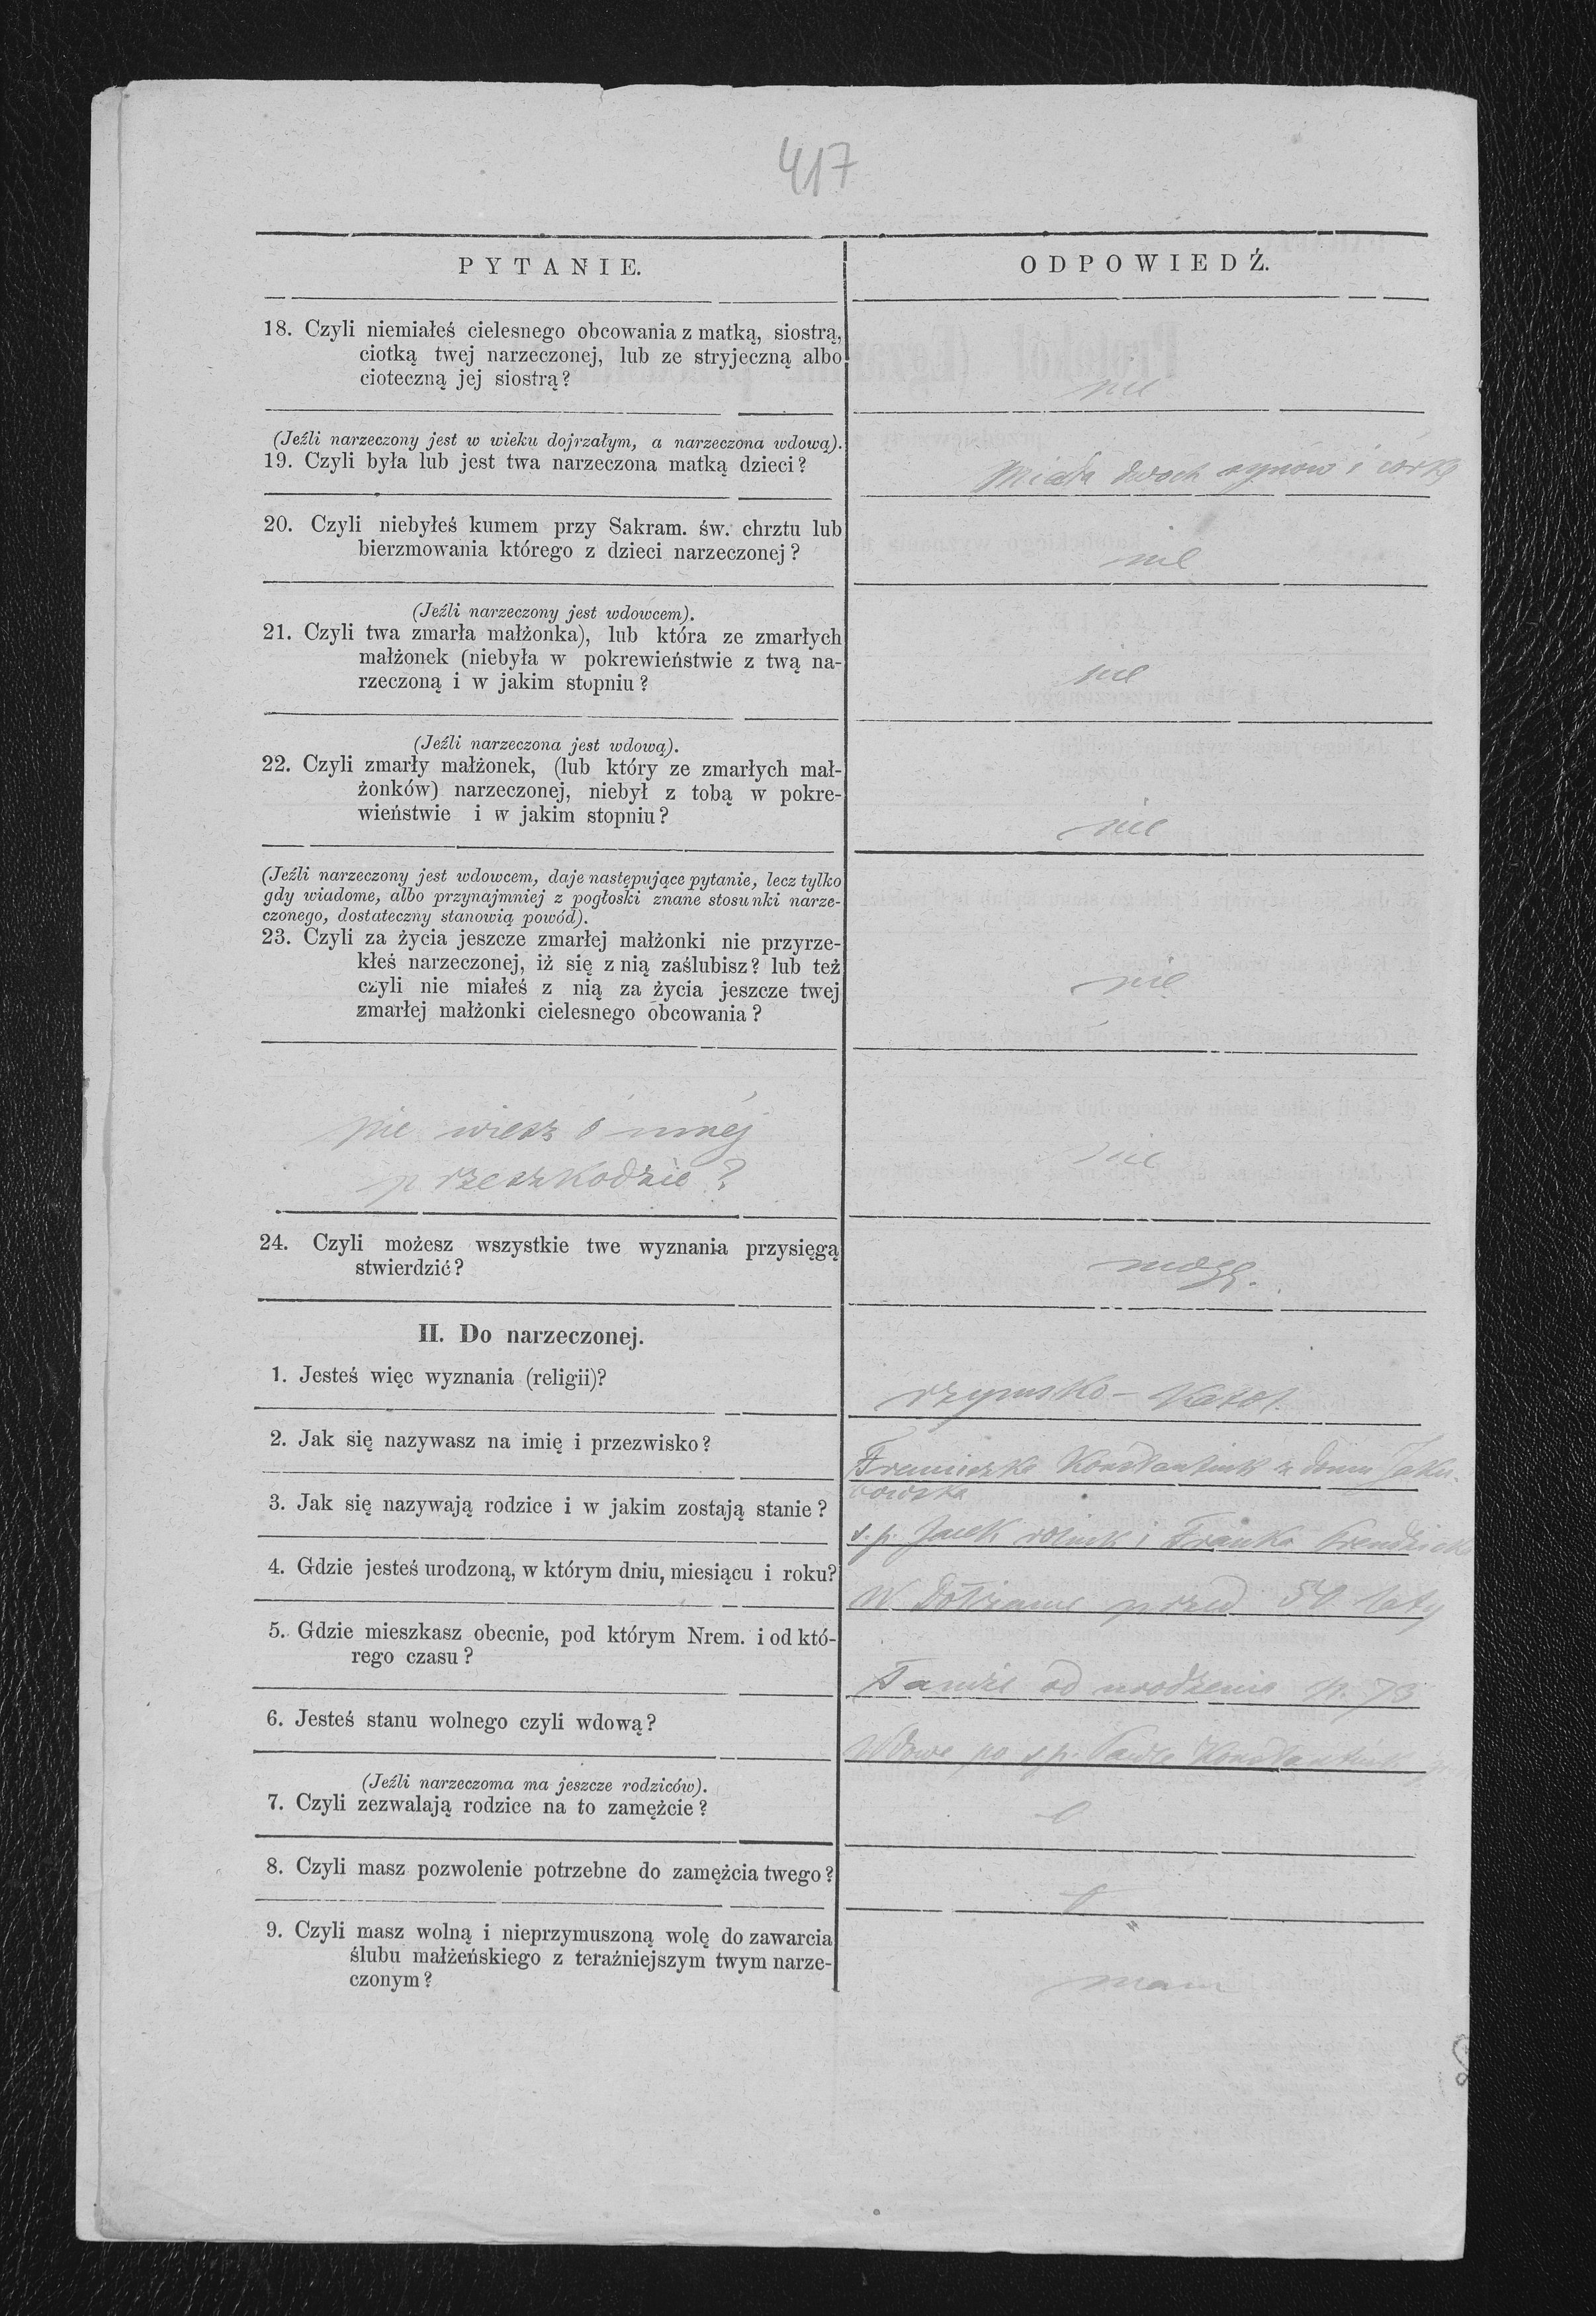 417
PYTANIE.
ODPOWIEDŹ.
18. Czyli niemiałeś cielesnego obcowania z matką, siostrą,
ciotką twej narzeczonej, lub ze stryjeczną albo
cioteczną jej siostrą?
nie
(Jeźli narzeczony jest w wieku dojrzałym, a narzeczona wdową).
19. Czyli była lub jest twa narzeczona matką dzieci?
Miała dwoch synów i córkę
20. Czyli niebyłeś kumem przy Sakram. św. chrztu lub
bierzmowania którego z dzieci narzeczonej?
nie
(Jeźli narzeczony jest wdowcem).
21. Czyli twa zmarła małżonka), lub która ze zmarłych
małżonek (niebyła w pokrewieństwie z twą na-
rzeczoną i w jakim stopniu?
nie
(Jeźli narzeczona jest wdową).
22. Czyli zmarły małżonek, (lub który ze zmarłych mał-
żonków) narzeczonej, niebył z tobą w pokre-
wieństwie i w jakim stopniu?
nie
(Jeźli narzeczony jest wdowcem, daje następujące pytanie, lecz tylko
gdy wiadome, albo przynajmniej z pogłoski znane stosunki narze-
czonego, dostateczny stanowią powód).
23. Czyli za życia jeszcze zmarłej małżonki nie przyrze-
kłeś narzeczonej, iż się z nią zaślubisz? lub też
czyli nie miałeś z nią za życia jeszcze twej
zmarłej małżonki cielesnego obcowania?
nie
nie wiesz o innej
przeszkodzie?
nie
24. Czyli możesz wszystkie twe wyznania przysięgą
stwierdzić?
mogę.
II. Do narzeczonej.
1. Jesteś więc wyznania (religii)?
rzymsko-katol.
2. Jak się nazywasz na imię i przezwisko?
z domu Jaku-
bowska
3. Jak się nazywają rodzice i w jakim zostają stanie?
ś. p. Jacek rolnik i
4. Gdzie jesteś urodzoną, w którym dniu, miesiącu i roku?
W przed 50 laty
5. Gdzie mieszkasz obecnie, pod którym Nrem. i od któ-
rego czasu?
Tamże od urodzenia N. 73
6. Jesteś stanu wolnego czyli wdową?
Wdowa po ś p. Pawle
(Jeźli narzeczoma ma jeszcze rodziców).
7. Czyli zezwalają rodzice na to zamężcie?
8. Czyli masz pozwolenie potrzebne do zamężcia twego?
9. Czyli masz wolną i nieprzymuszoną wolę do zawarcia
ślubu małżeńskiego z teraźniejszym twym narze-
czonym?
mam